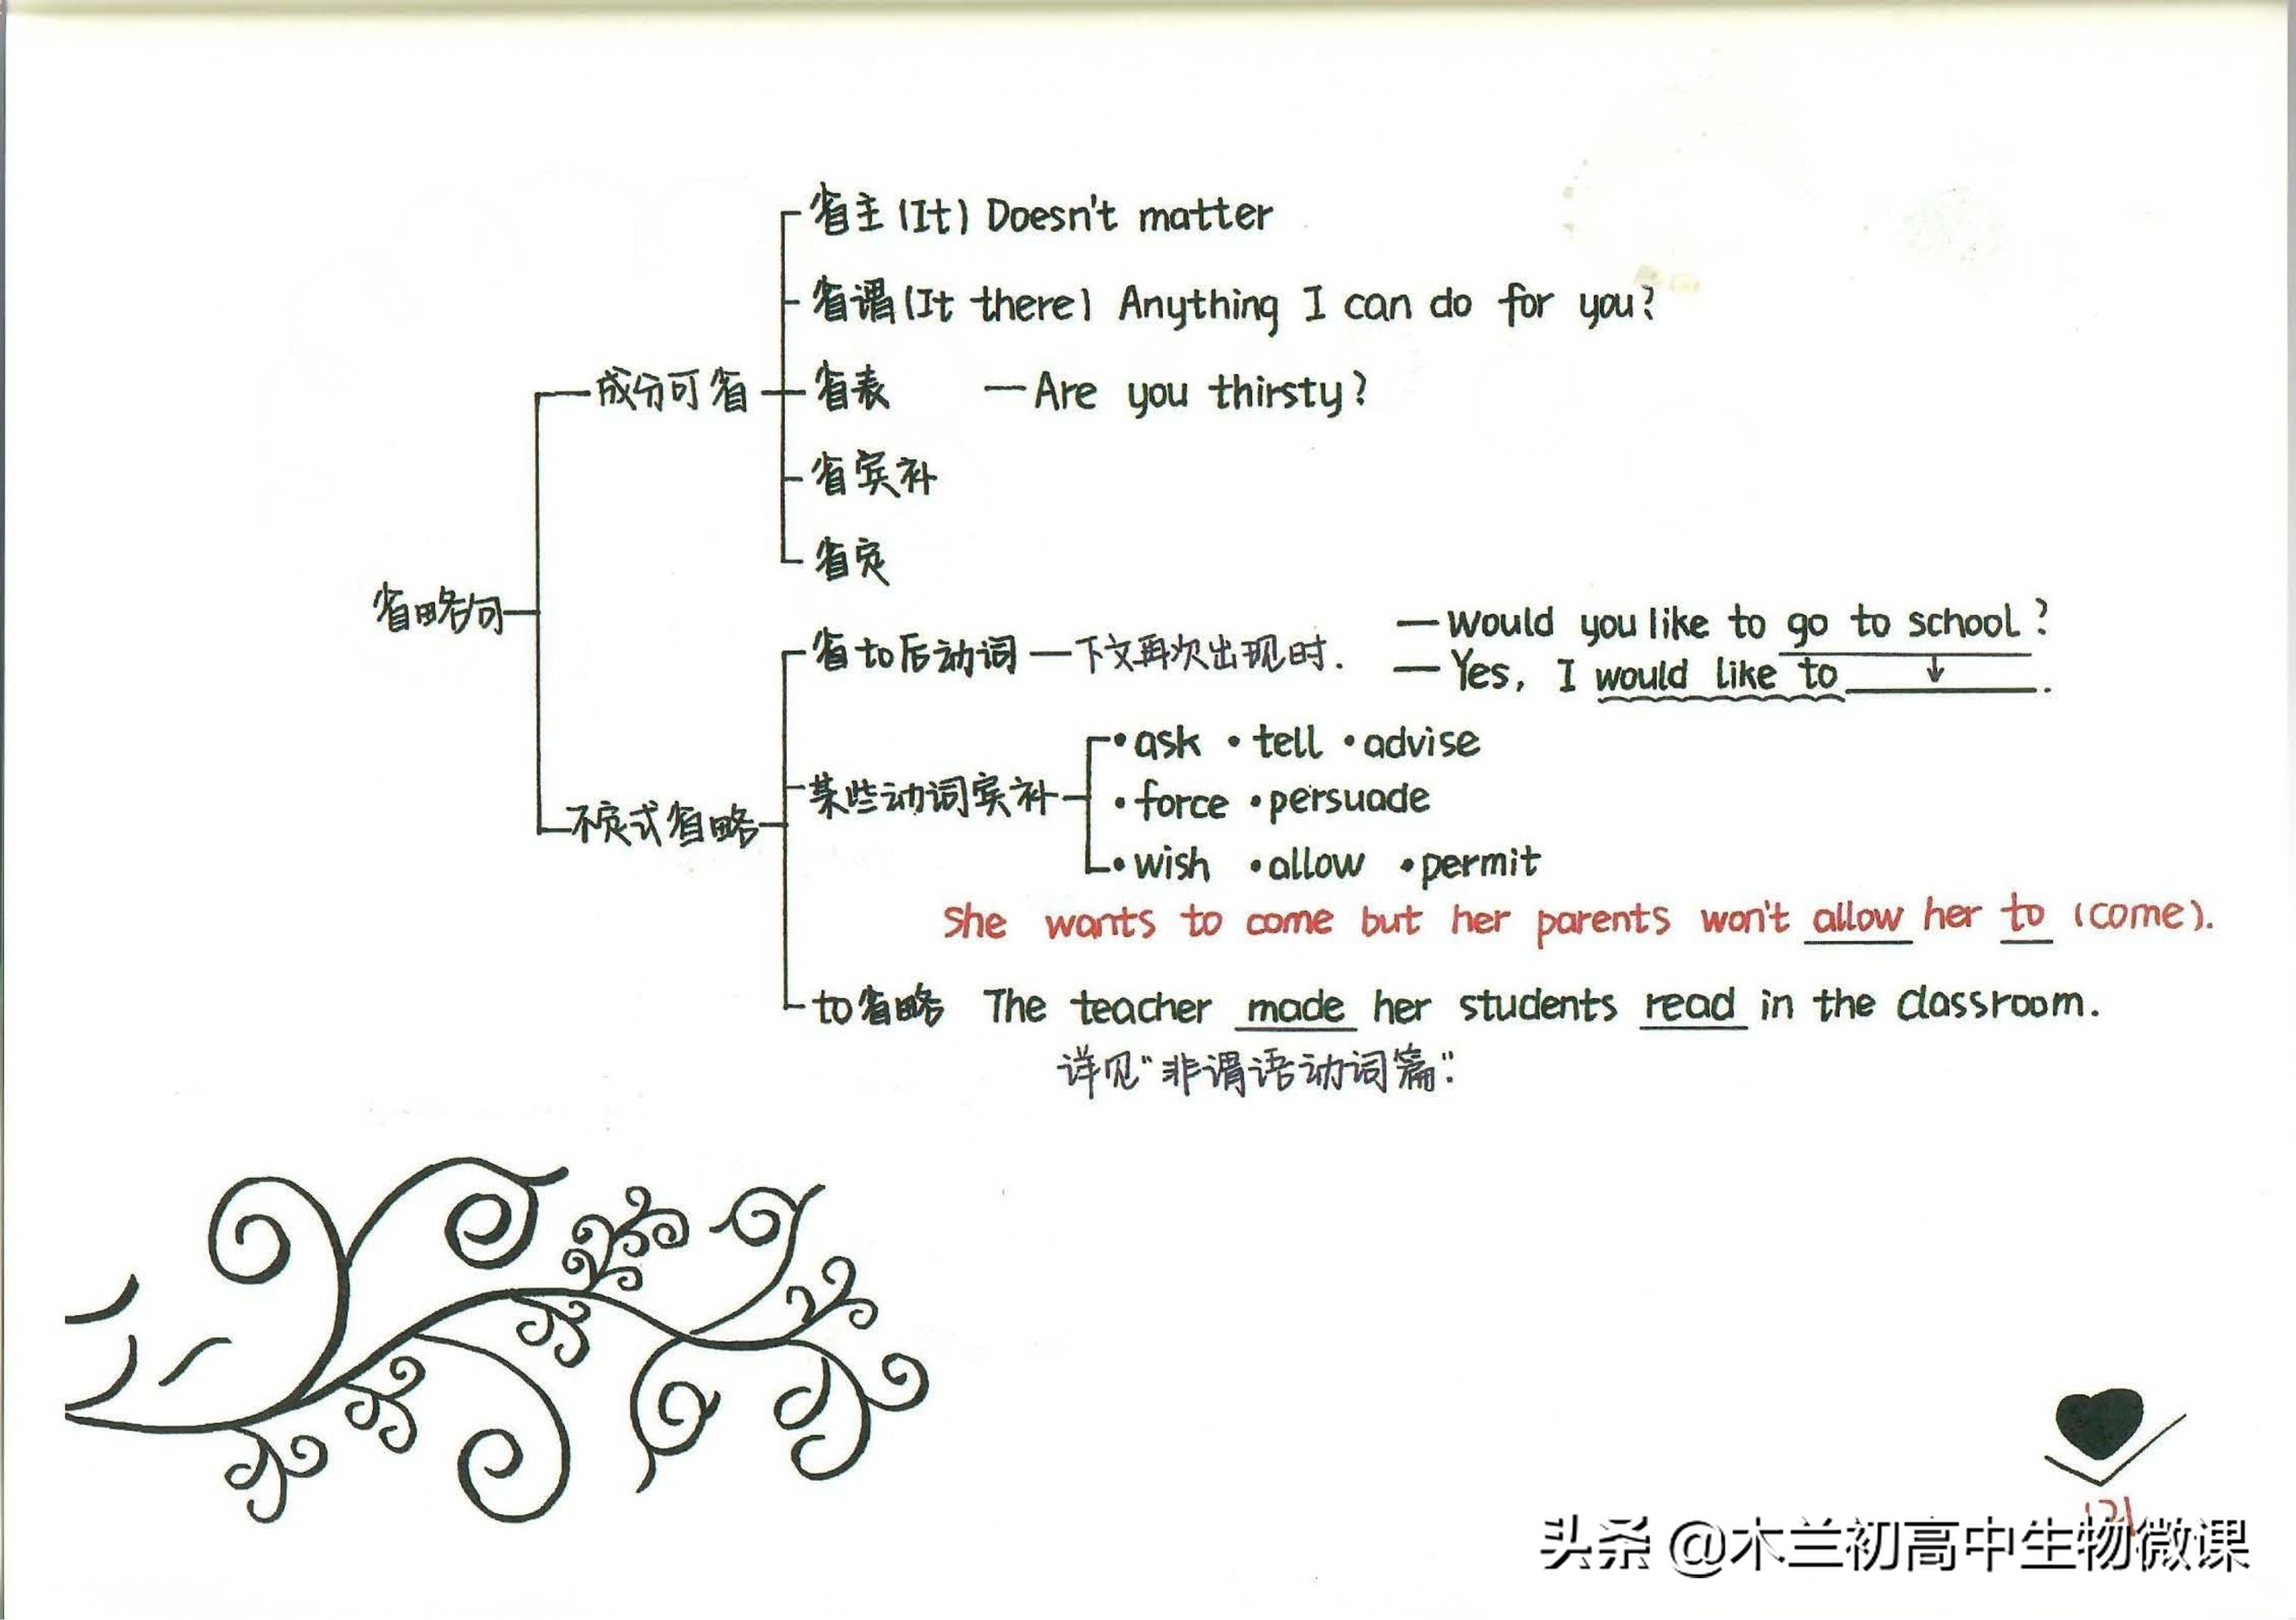 省主 (It) Doesn't matter
省谓 (It there) Anything I can do for you?
成分可省
省表 —Are you thirsty?
省宾补
省定
省略句
省to后动词 — 下文再次出现时.
—Would you like to go to school?
—Yes, I would like to ________.
不定式省略
某些动词宾补
•ask •tell •advise
•force •persuade
•wish •allow •permit
She wants to come but her parents won't allow her to (come).
to省略 The teacher made her students read in the classroom.
详见"非谓语动词篇".
头条 @木兰初高中生物微课